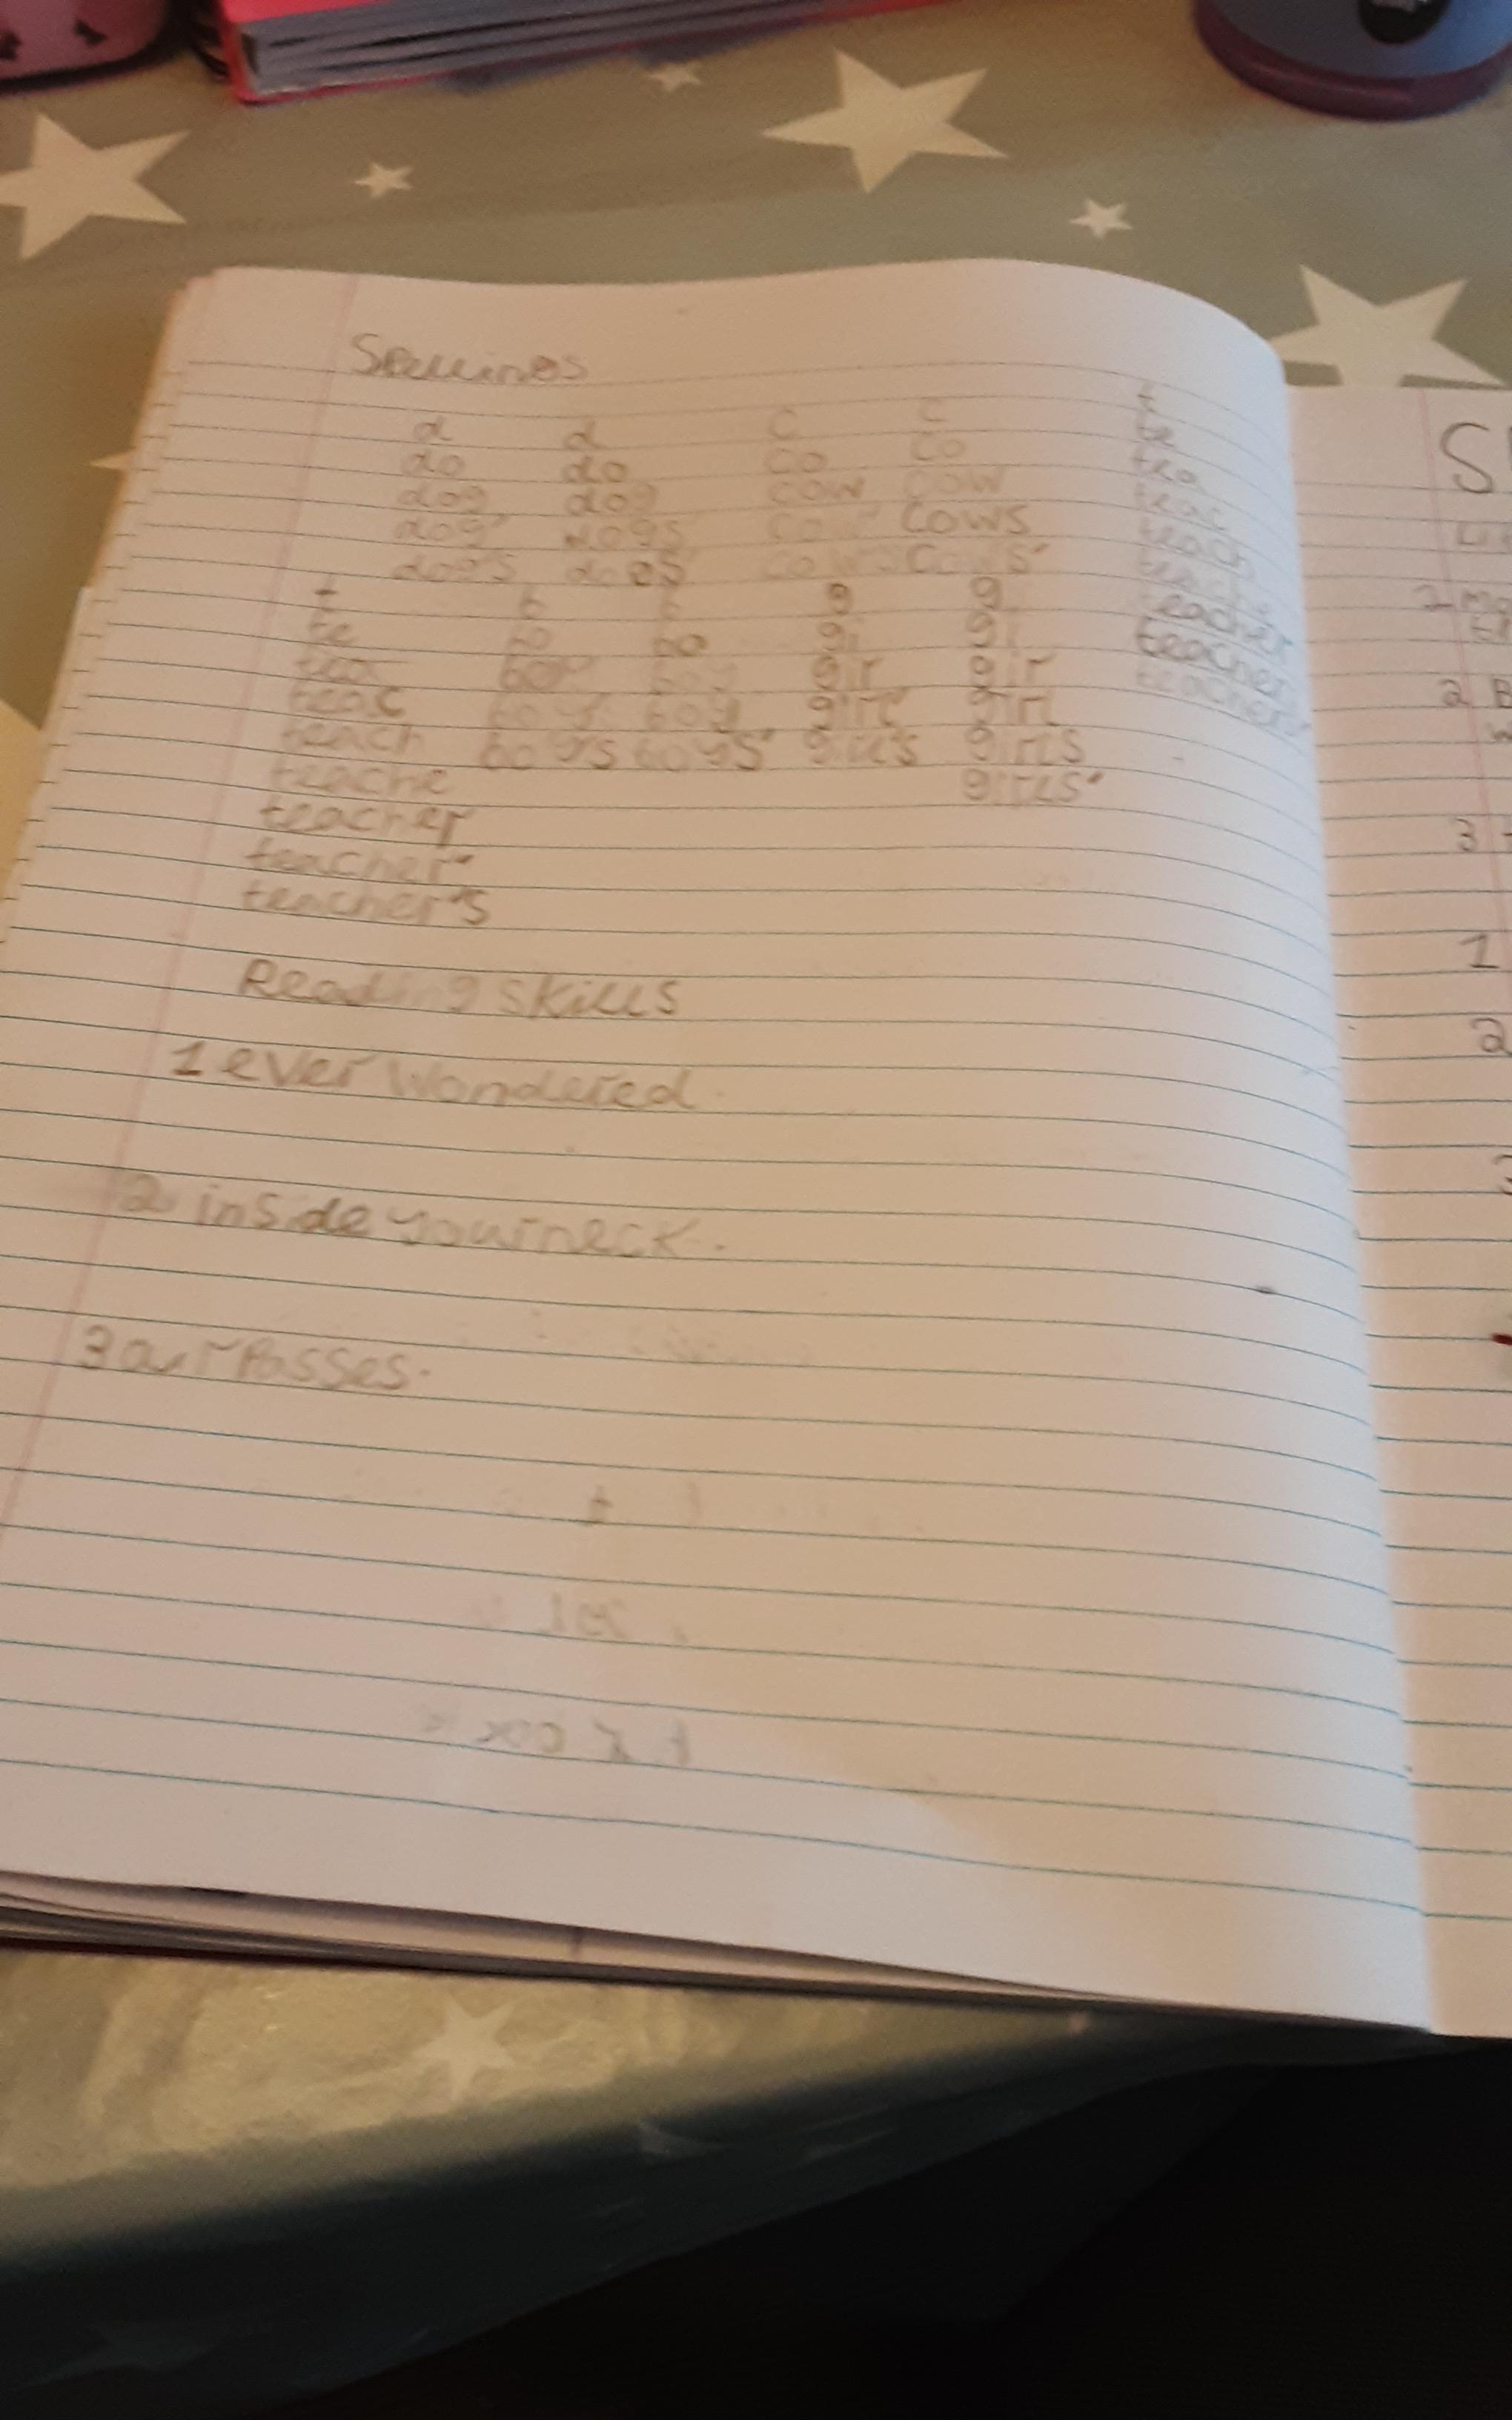 Spellings
d d c c t
do do co co te
dog dog cow cow tea
dog' dogs cow' cows teac
dog's dogs' cow's cows' teach
t b b g g teache
te bo bo gi gi teacher
tea boy boy gir gir teacher
teac boy' boy girl' girl teachers'
teach boy's boys' girl's girls
teache girls'
teacher
teacher'
teacher's
Reading skills
1 ever wondered.
2 inside your neck.
3 air passes.
S
2
2
3
1
2